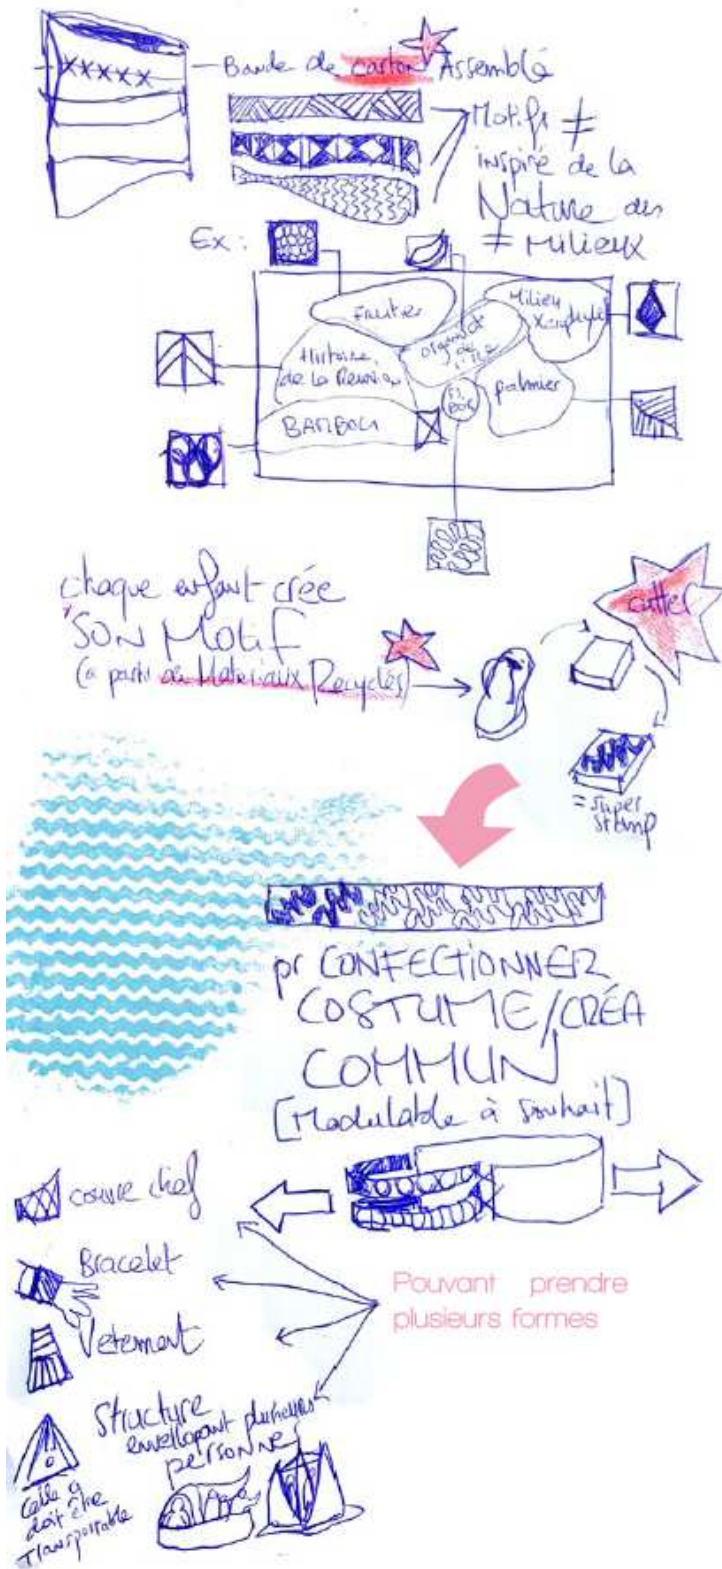 Bande de carton Assemblé
Motifs ≠
inspiré de la
Nature des
≠ Milieux
Ex :
Fruitier
Milieu
Xérophyle
Histoire
de la Réunion
de l'île
palmier
BAMBOU
chaque enfant crée
SON MOTIF
(à partir de Matériaux Recyclés)
cutter
= super
stamp
pr CONFECTIONNER
COSTUME/CRÉA
COMMUN
[Modulable à souhait]
couvre chef
Bracelet
Pouvant prendre
plusieurs formes
Vetement
Structure
enveloppant plusieurs
personne
!
Celle ci
doit être
transportable